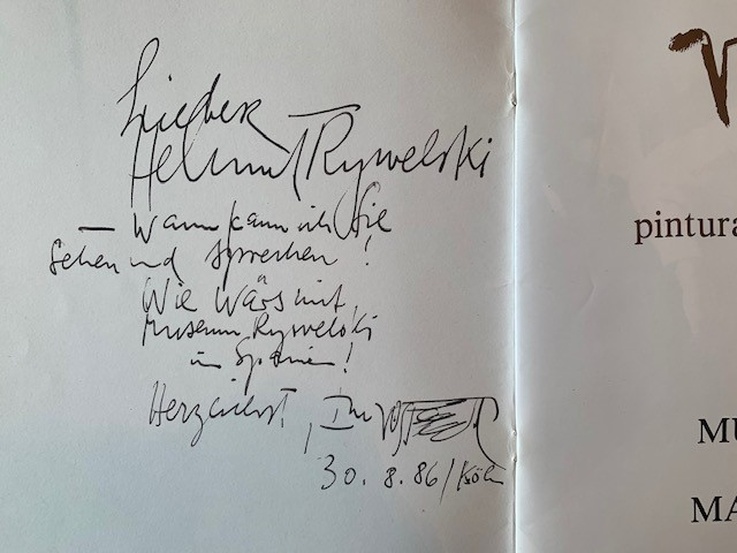 Lieber
Helmut Rywelski
— Wann kann ich Sie
sehen und sprechen!
Wie wärs mit
Museum Rywelski
in Spanien!
Herzlichst, Ihr
30. 8. 86/Köln
pintura
MU
MA